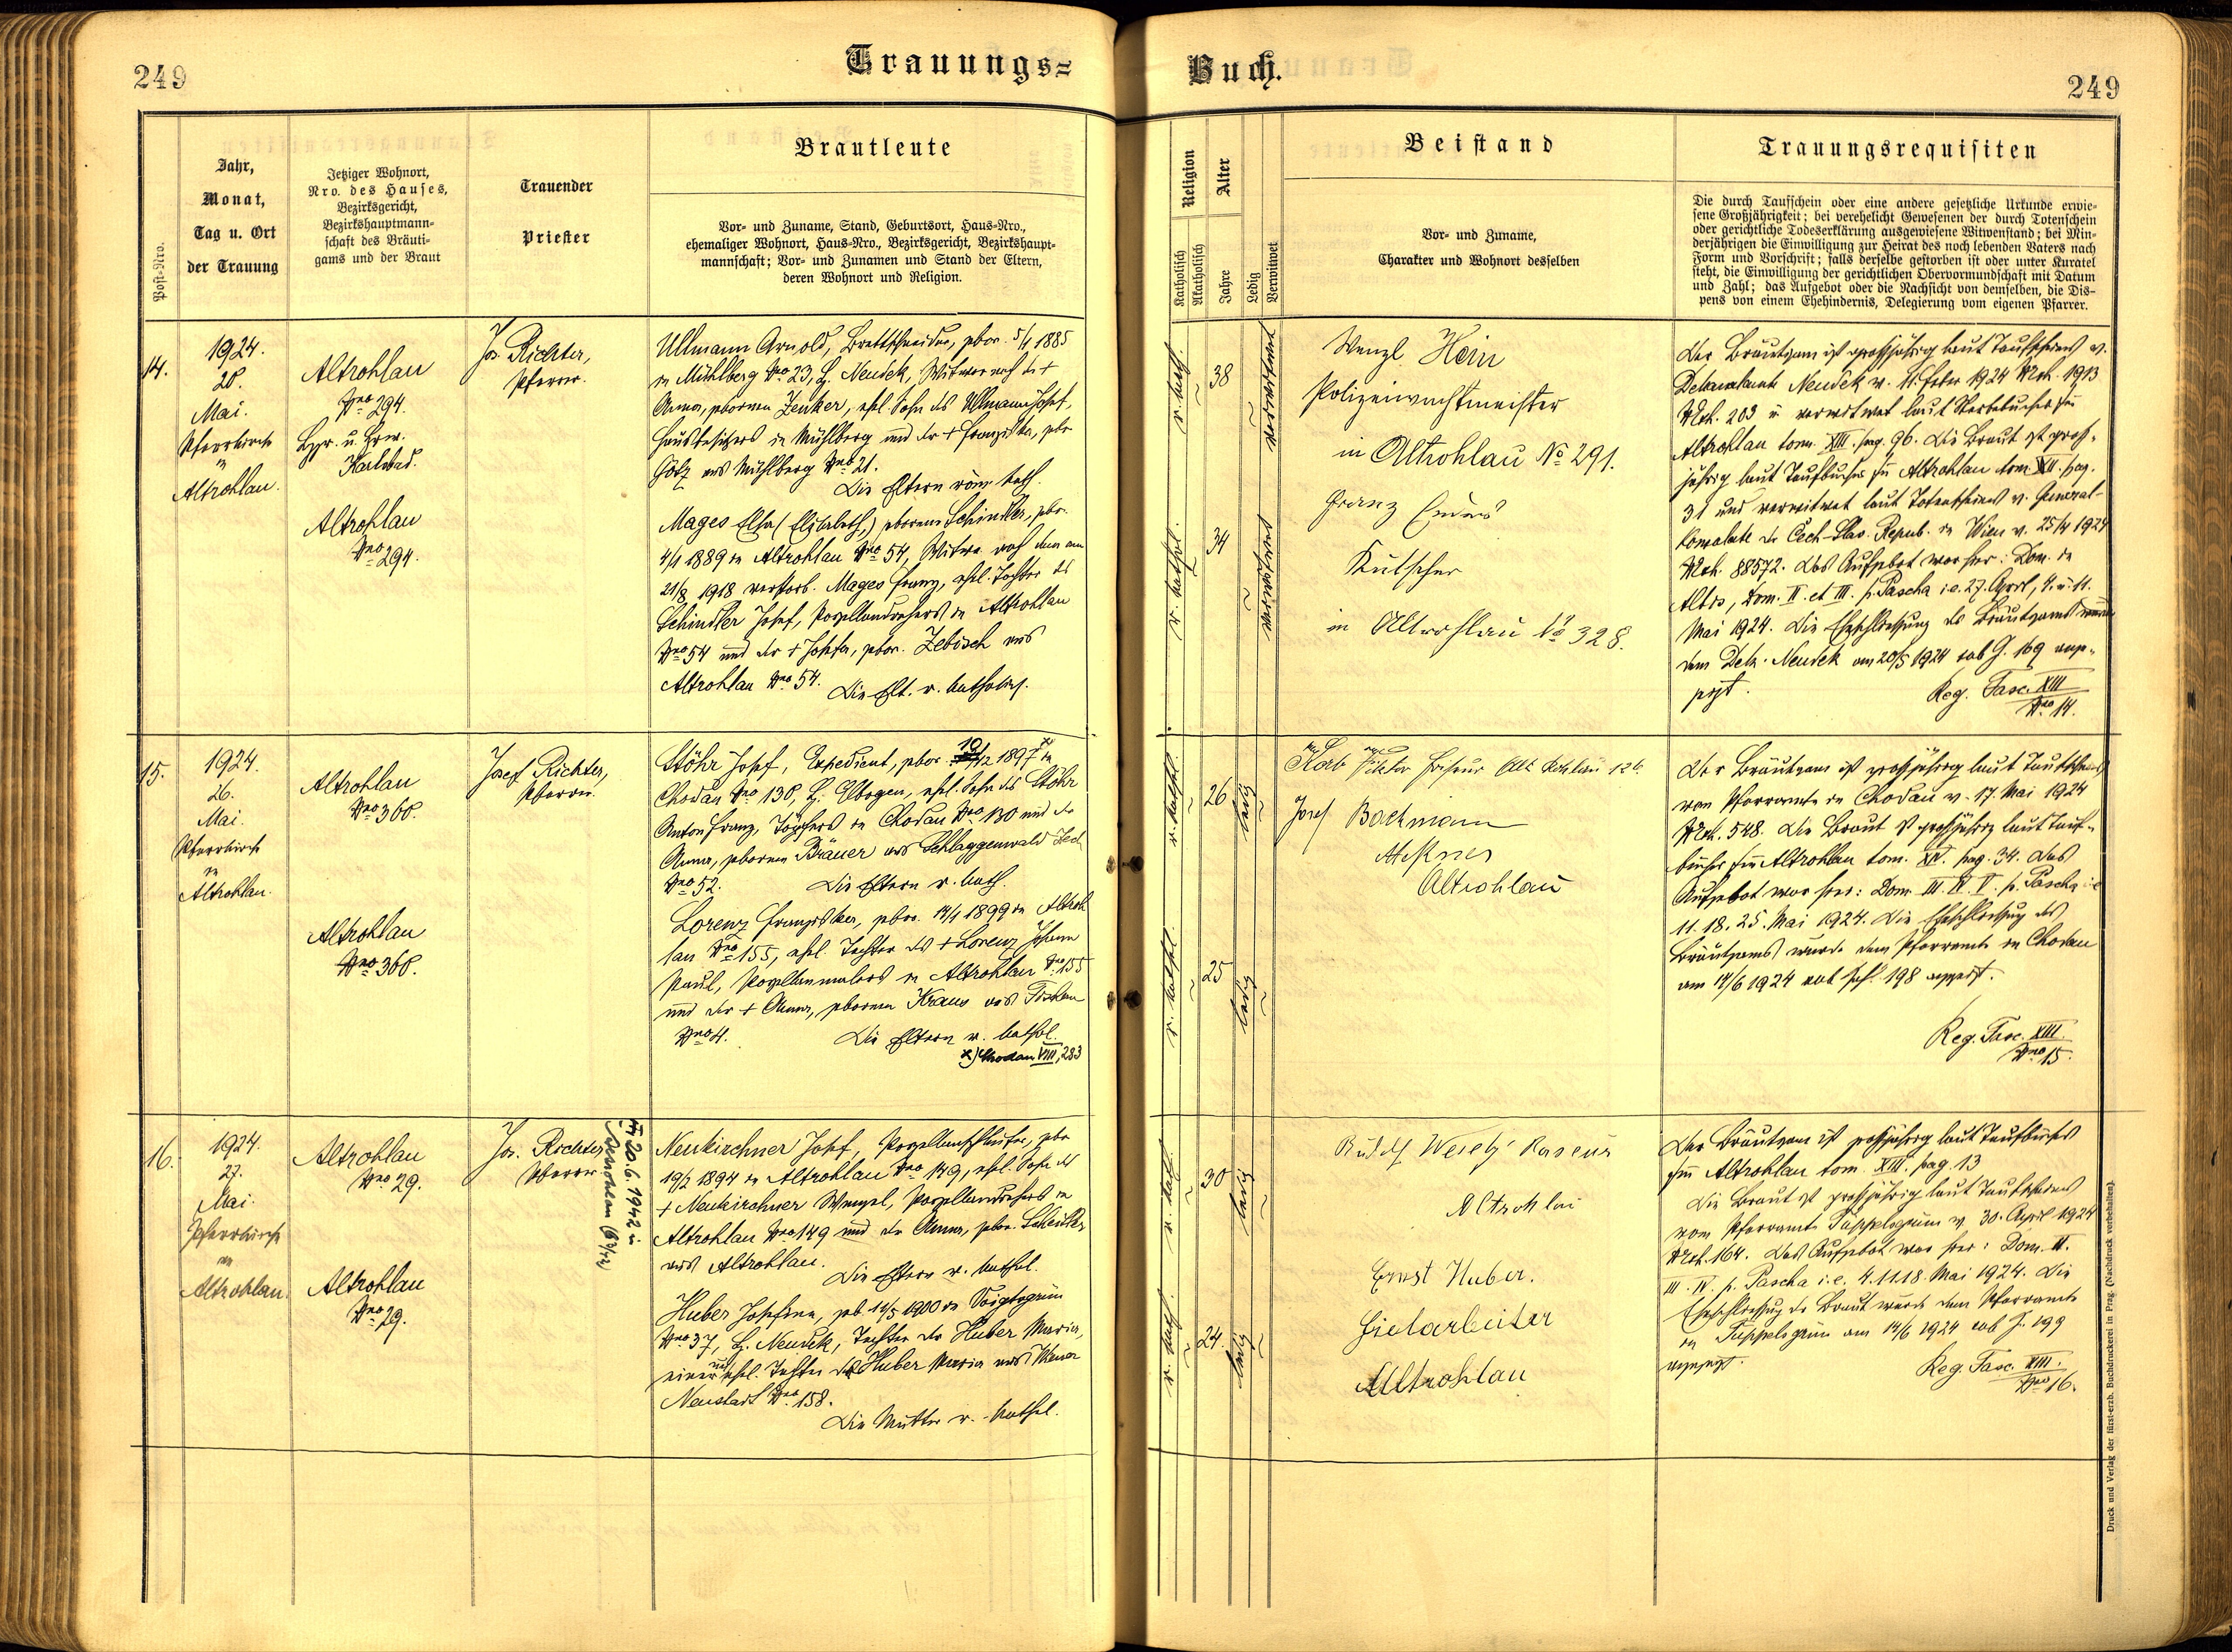 249
Trauungs=
Buch.
249
Post-Nro.
Jahr,
Monat,
Tag u. Ort
der Trauung
Jetziger Wohnort,
Nro. des Hauses,
Bezirksgericht,
Bezirkshauptmann-
schaft des Bräuti-
gams und der Braut
Trauender
Priester
Brautleute
Vor- und Zuname, Stand, Geburtsort, Haus-Nro.,
ehemaliger Wohnort, Haus-Nro., Bezirksgericht, Bezirkshaupt-
mannschaft; Vor- und Zunamen und Stand der Eltern,
deren Wohnort und Religion.
Religion
Katholisch
Akatholisch
Alter
Jahre
Ledig
Verwitwet
Beistand
Vor- und Zuname,
Charakter und Wohnort desselben
Trauungsrequisiten
Die durch Taufschein oder eine andere gesetzliche Urkunde erwie-
sene Großjährigkeit; bei verehelicht Gewesenen der durch Totenschein
oder gerichtliche Todeserklärung ausgewiesene Witwenstand; bei Min-
derjährigen die Einwilligung zur Heirat des noch lebenden Vaters nach
Form und Vorschrift; falls derselbe gestorben ist oder unter Kuratel
steht, die Einwilligung der gerichtlichen Obervormundschaft mit Datum
und Zahl; das Aufgebot oder die Nachsicht von demselben, die Dis-
pens von einem Ehehindernis, Delegierung vom eigenen Pfarrer.
14.
1924.
20.
Mai.
Pfarrkirche
in
Altrohlau.
Altrohlau
Nro 294.
Karlsbad.
Altrohlau
Nro 294.
Jos. Richter,
Pfarrer.
Ullmann Arnold, Brettschneider, gebor. 5/4 1885
in Mühlberg Nro 23, B. Neudek, Witwer nach der +
Anna, geborenen Zenker, ehel. Sohn des Ullmann Josef,
Hausbesitzers in Mühlberg und der + Franziska, geb.
Götz aus Mühlberg Nro 21.
Die Eltern röm. kath.
Mages Elsa (Elisabeth,) geborene Schindler, gebor.
4/1 1889 in Altrohlau Nro 54, Witwe nach dem am
21/8 1918 verstorb. Mages Franz, ehel. Tochter des
Schindler Josef, Porzellandrehers in Altrohlau
Nro 54 und der + Josefa, gebor. Zebisch aus
Altrohlau Nro 54. Die Elt. r. katholisch.
r. kath.
38
verwitwet
r. kathol.
34
verwitwet
Wenzl Hein
Polizeiwachtmeister
in Altrohlau No 291.
Franz Enders
Kutscher
in Altrohlau No 328.
Der Bräutigam ist großjährig laut Taufscheines v.
Dekanalamte Neudek v. 11. Feber 1924
203 u. verwitwet laut Sterbebuches fü
Altrohlau tom. XIII. pag. 96. Die Braut ist groß-
jährig laut Taufbuches fü Altrohlau tom. XII. pag.
31 und verwitwet laut Totenscheines v. General-
konsulate der Čech-Slav. Repub. in Wien v. 25/4 1924
88572. Das Aufgebot war hier: Dom. in
Albis, Dom. II. et III. p. Pascha i.e. 27. April, 4. u. 11.
Mai 1924. Die Eheschließung des Bräutigams wurde
dem Dek. Neudek am 20/5 1924 sub J. 169 ange-
zeigt.
Reg. Fasc. XIII
Nro 14.
15.
1924.
26.
Mai.
Pfarrkirche
in
Altrohlau.
Altrohlau
Nro 360.
Altrohlau
Nro 360.
Josef Richter,
Pfarrer.
Stöhr Josef, Expedient, gebor. 10/12 1897 x in
Chodau Nro 130, B. Elbogen, ehel. Sohn des Stöhr
Anton Franz, Töpfers in Chodau Nro 130 und der
Anna, geborenen Bräuer aus Schlaggenwald
Nro 52. Die Eltern r. kath.
Lorenz Franziska, gebor. 14/1 1899 in Altroh
lau Nro 155, ehel. Tochter des + Lorenz Johann
Paul, Porzellanmalers in Altrohlau Nro 155
und der + Anna, geborenen Kraus aus Fischern
Nro 4. Die Eltern r. kathol.
x) Chodau VIII, 283
r. kathol.
26
ledig
r. kathol.
25
ledig
Korb Viktor Friseur Alt Rohlau 126.
Josef Bachmann
Meßner
Altrohlau
Der Bräutigam ist großjährig laut Taufscheines
vom Pfarramte in Chodau v. 17. Mai 1924
548. Die Braut ist großjährig laut Tauf-
buches fü Altrohlau tom. XIV. pag. 34. Das
Aufgebot war hier: Dom. III. IV. V. p. Pascha i.e.
11. 18. 25. Mai 1924. Die Eheschließung des
Bräutigams wurde dem Pfarramte in Chodau
am 14/6 1924 sub 198 angezeigt.
Reg. Fasc. XIII.
Nro 15.
16.
1924.
27.
Mai.
Pfarrkirche
in
Altrohlau.
Altrohlau
Nro 29.
Altrohlau
Nro 29.
Jos. Richter,
Pfarrer
20.6.1942 in
Neukirchner Josef, Porzellanschleifer, gebor
19/2 1894 in Altrohlau Nro 149, ehel. Sohn des
+ Neukirchner Wenzel, Porzellandrehers in
Altrohlau Nro 149 und der Anna, gebor. Scheitler
aus Altrohlau. Die Eltern r. kathol.
Huber Josefine, geb. 11/5 1900 in Voigtsgrün
Nro 37, B. Neudek, Tochter der Huber Maria,
einer unehel. Tochter der Huber Maria aus Wiener
Neustadt Nro 158.
Die Mutter r. kathol.
r. kath.
30
ledig
r. kath.
24.
ledig
Rudolf Wesely Raseur
Altrohlau
Ernst Huber.
Altrohlau
Der Bräutigam ist großjährig laut Taufbuches
fü Altrohlau tom. XIII. pag. 13
Die Braut ist großjährig laut Taufscheines
vom Pfarramte Tüppelsgrün v. 30. April 1924
164. Das Aufgebot war hier: Dom. II.
III. IV. p. Pascha i.e. 4. 11. 18. Mai 1924. Die
Eheschließung der Braut wurde dem Pfarramte
in Tüppelsgrün am 14/6 1924 sub J. 199
angezeigt.
Reg. Fasc. XIII.
Nro 16.
Druck und Verlag der fürst-erzb. Buchdruckerei in Prag. (Nachdruck vorbehalten).